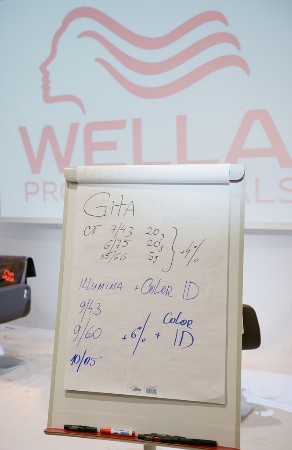 WELLA
PRO ALS
GitA
CT 7/43 20g
6/75 20g
55/66 5g
+6%
ILLUMINA + COLOR ID
9/43
9/60 +6% + COLOR ID
10/05